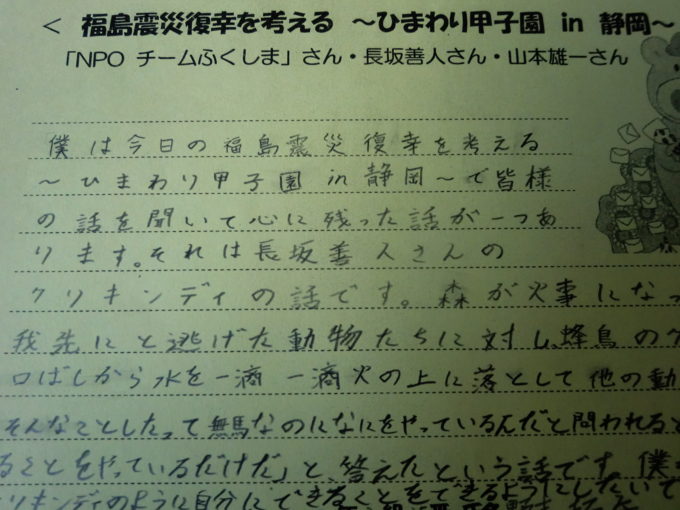 < 福島震災復幸を考える ～ひまわり甲子園 in 静岡～
「NPO チームふくしま」さん・長坂善人さん・山本雄一さん
僕は今日の福島震災復幸を考える
～ひまわり甲子園 in 静岡～で皆様
の話を聞いて心に残った話が一つあ
ります。それは長坂善人さんの
クリキンディの話です。森が火事になっ
我先にと逃げた動物たちに対し、蜂鳥のク
口ばしから水を一滴一滴火の上に落として他の動
そんなことしたって無駄なのになにをやっているんだと問われると
ることをやっているだけだ」と、答えたという話です。僕
リキンディのように自分にできることをできるようにしたいで